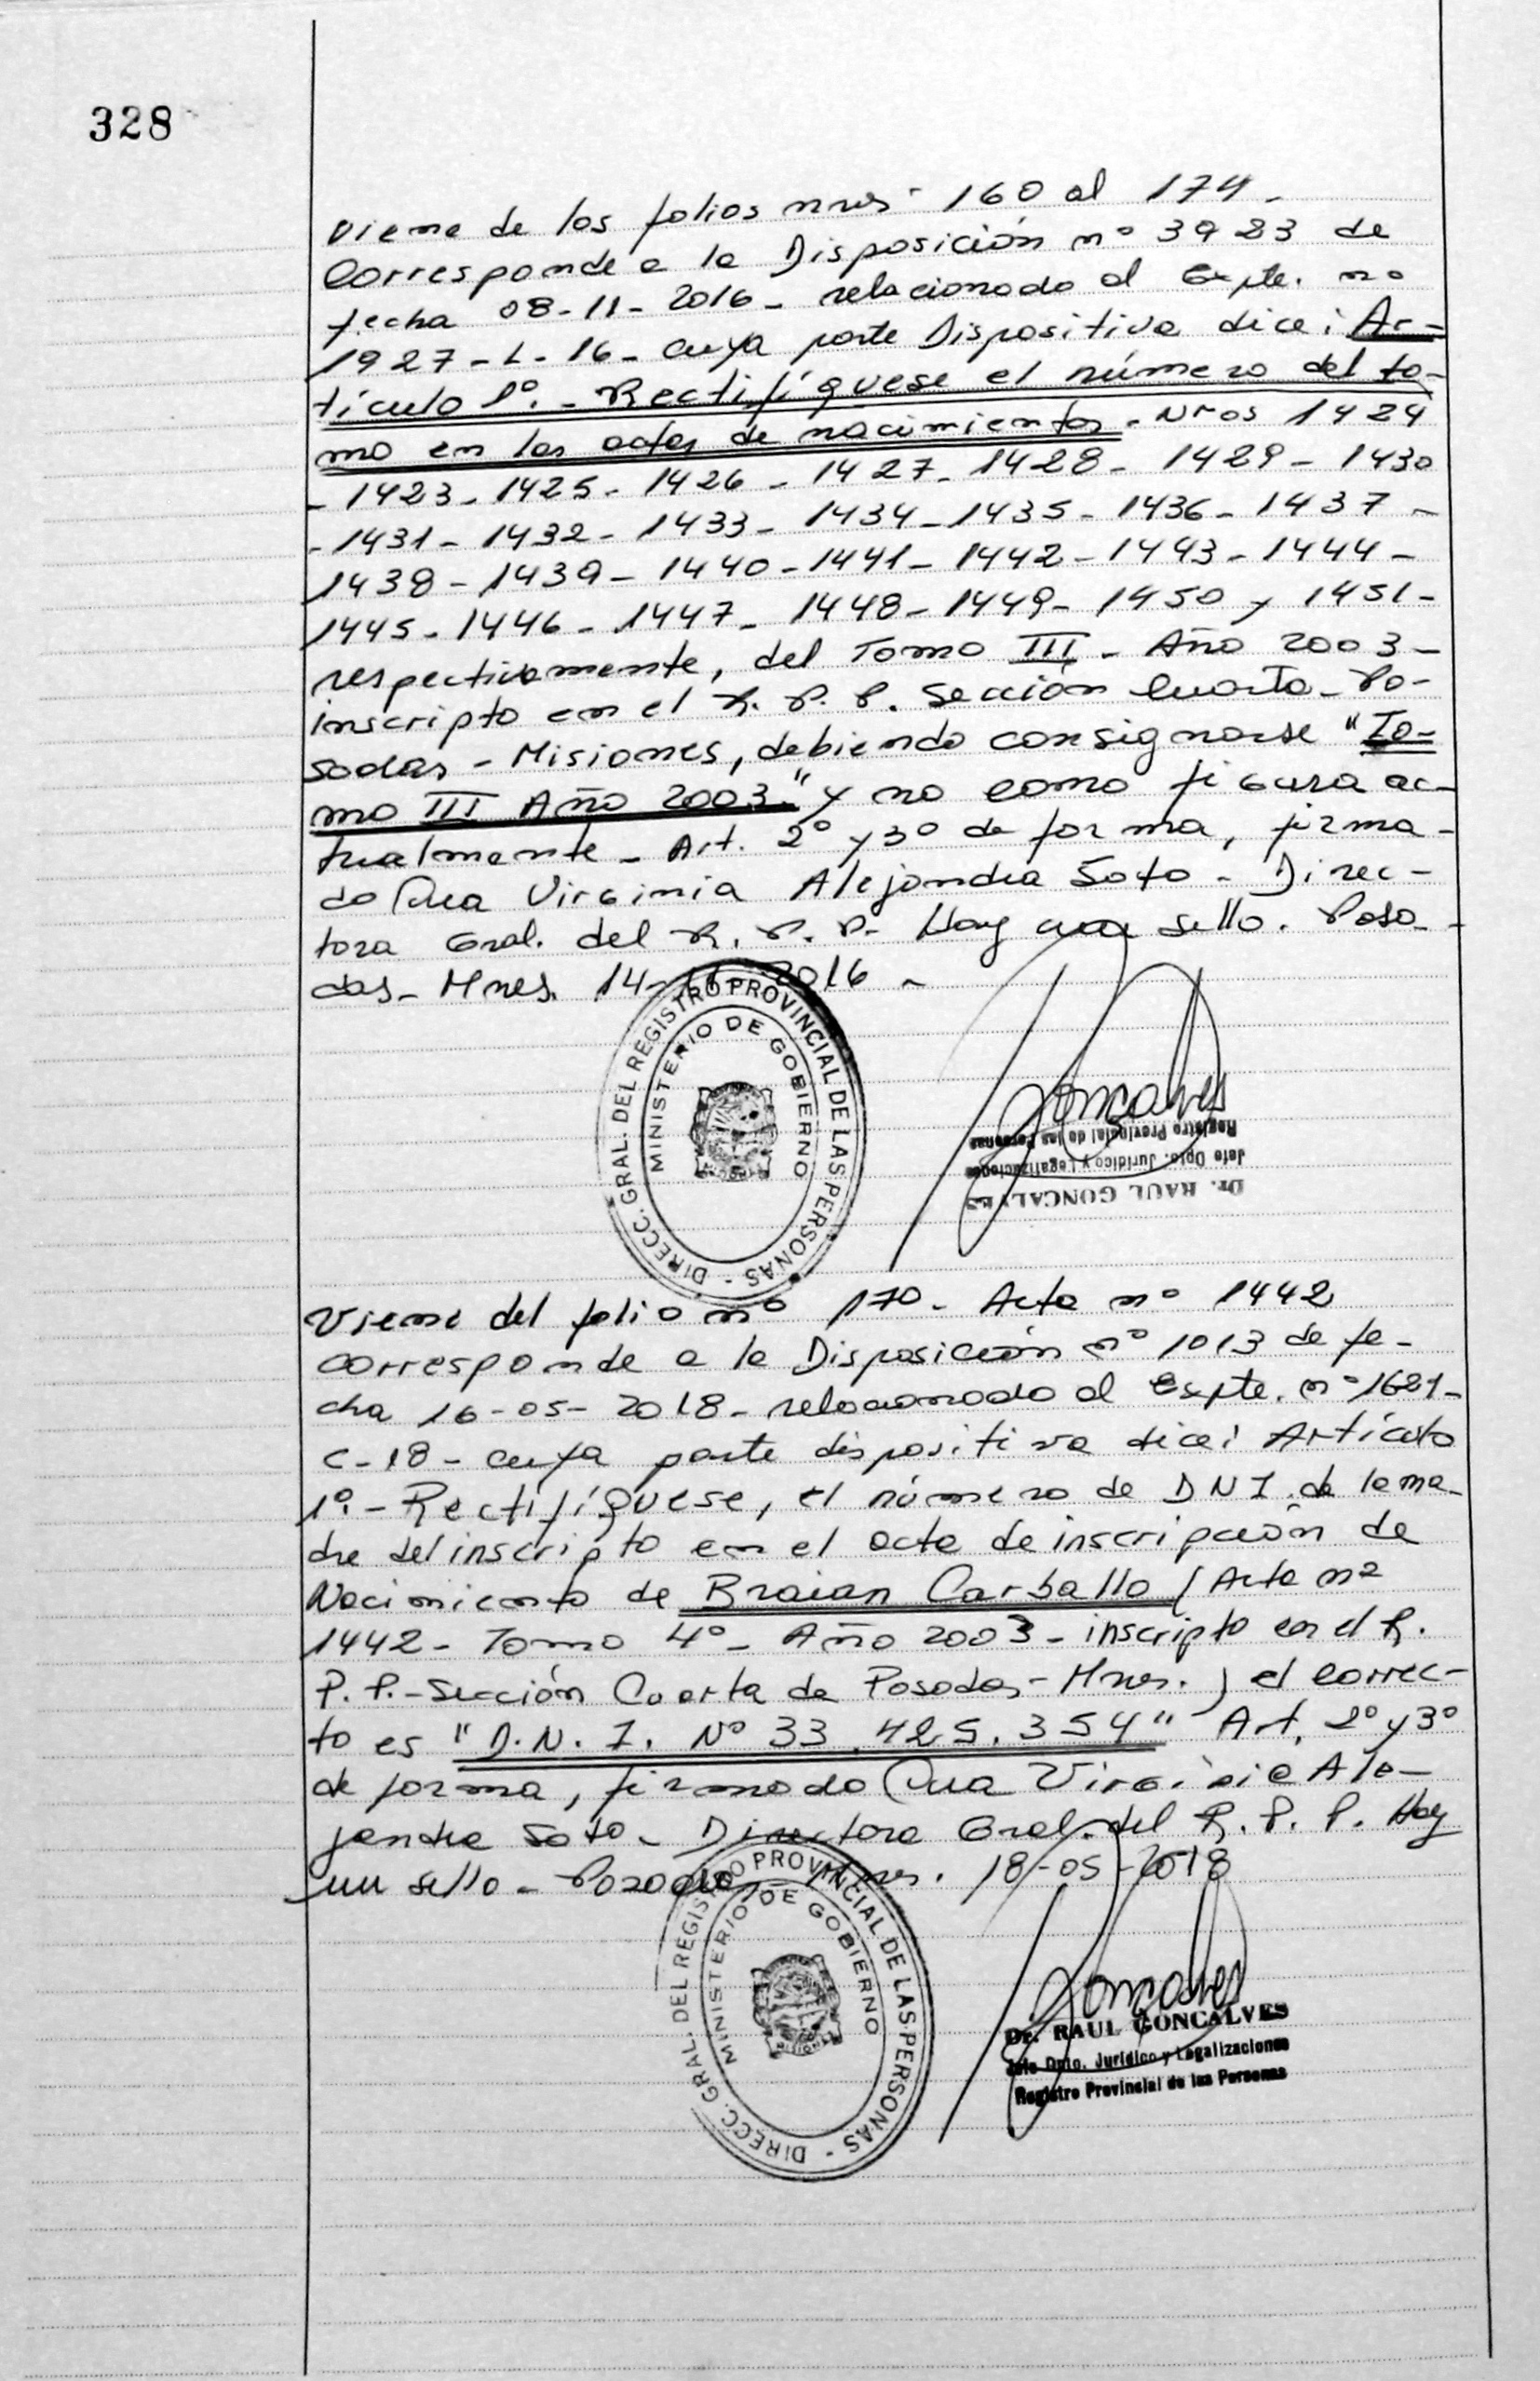 328
Viene de los folios nros 160 al 174 -
Corresponde a la Disposición nº 3923 de
fecha 08-11-2016 - relacionado al Expte. nº
1927-L-16 - cuya parte Dispositiva dice: Ar-
tículo 1º. - Rectifíquese el número del to-
mo en las actas de nacimientos. Nros 1424
- 1423 - 1425 - 1426 - 1427 - 1428 - 1429 - 1430
- 1431 - 1432 - 1433 - 1434 - 1435 - 1436 - 1437 -
1438 - 1439 - 1440 - 1441 - 1442 - 1443 - 1444 -
1445 - 1446 - 1447 - 1448 - 1449 - 1450 y 1451 -
respectivamente, del Tomo III - Año 2003 -
inscripto en el R. P. P. Sección Cuarta - Po-
sadas - Misiones, debiendo consignarse "To-
mo III Año 2003" y no como figura ac-
tualmente - Art. 2º y 3º de forma, firma-
do Dra Virginia Alejandra Soto - Direc-
tora Gral. del R. P. P. Hay un sello. Posa-
das - Mnes. 14-11-2016 -
DIRECC. GRAL. DEL REGISTRO PROVINCIAL DE LAS PERSONAS -
MINISTERIO DE GOBIERNO
Goncalves
Dr. RAUL GONCALVES
Jefe Dpto. Jurídico y Legalizaciones
Registro Provincial de las Personas
Viene del folio nº 170 - Acta nº 1442
corresponde a la Disposición nº 1013 de fe-
cha 16-05-2018 - relacionado al Expte. nº 1621-
C-18 - cuya parte dispositiva dice: Artículo
1º. - Rectifíquese, el número de DNI de la ma-
dre del inscripto en el acta de inscripción de
Nacimiento de Braian Carballo (Acta nº
1442 - Tomo 4º - Año 2003 - inscripto en el R.
P. P. - Sección Cuarta de Posadas - Mnes.) el correc-
to es "D.N.I. Nº 33.425.354" Art. 2º y 3º
de forma, firmado Dra Virginia Ale-
jandra Soto - Directora Gral. del R. P. P. Hay
un sello - Posadas - Mnes. 18-05-2018
DIRECC. GRAL. DEL REGISTRO PROVINCIAL DE LAS PERSONAS -
MINISTERIO DE GOBIERNO
MISIONES
Goncalves
Dr. RAUL GONCALVES
Jefe Dpto. Jurídico y Legalizaciones
Registro Provincial de las Personas